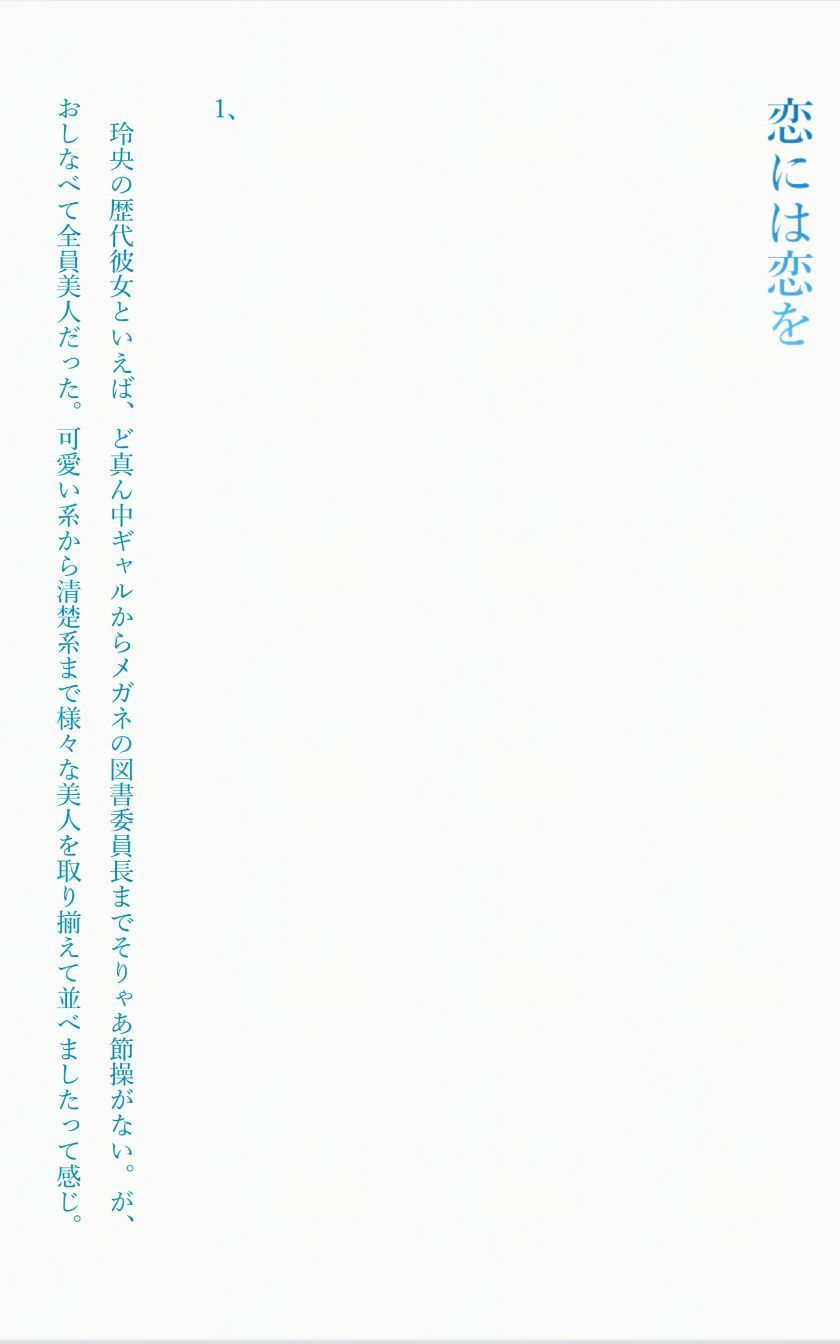 恋には恋を
1、
玲央の歴代彼女といえば、ど真ん中ギャルからメガネの図書委員長までそりゃあ節操がない。が、
おしなべて全員美人だった。可愛い系から清楚系まで様々な美人を取り揃えて並べましたって感じ。